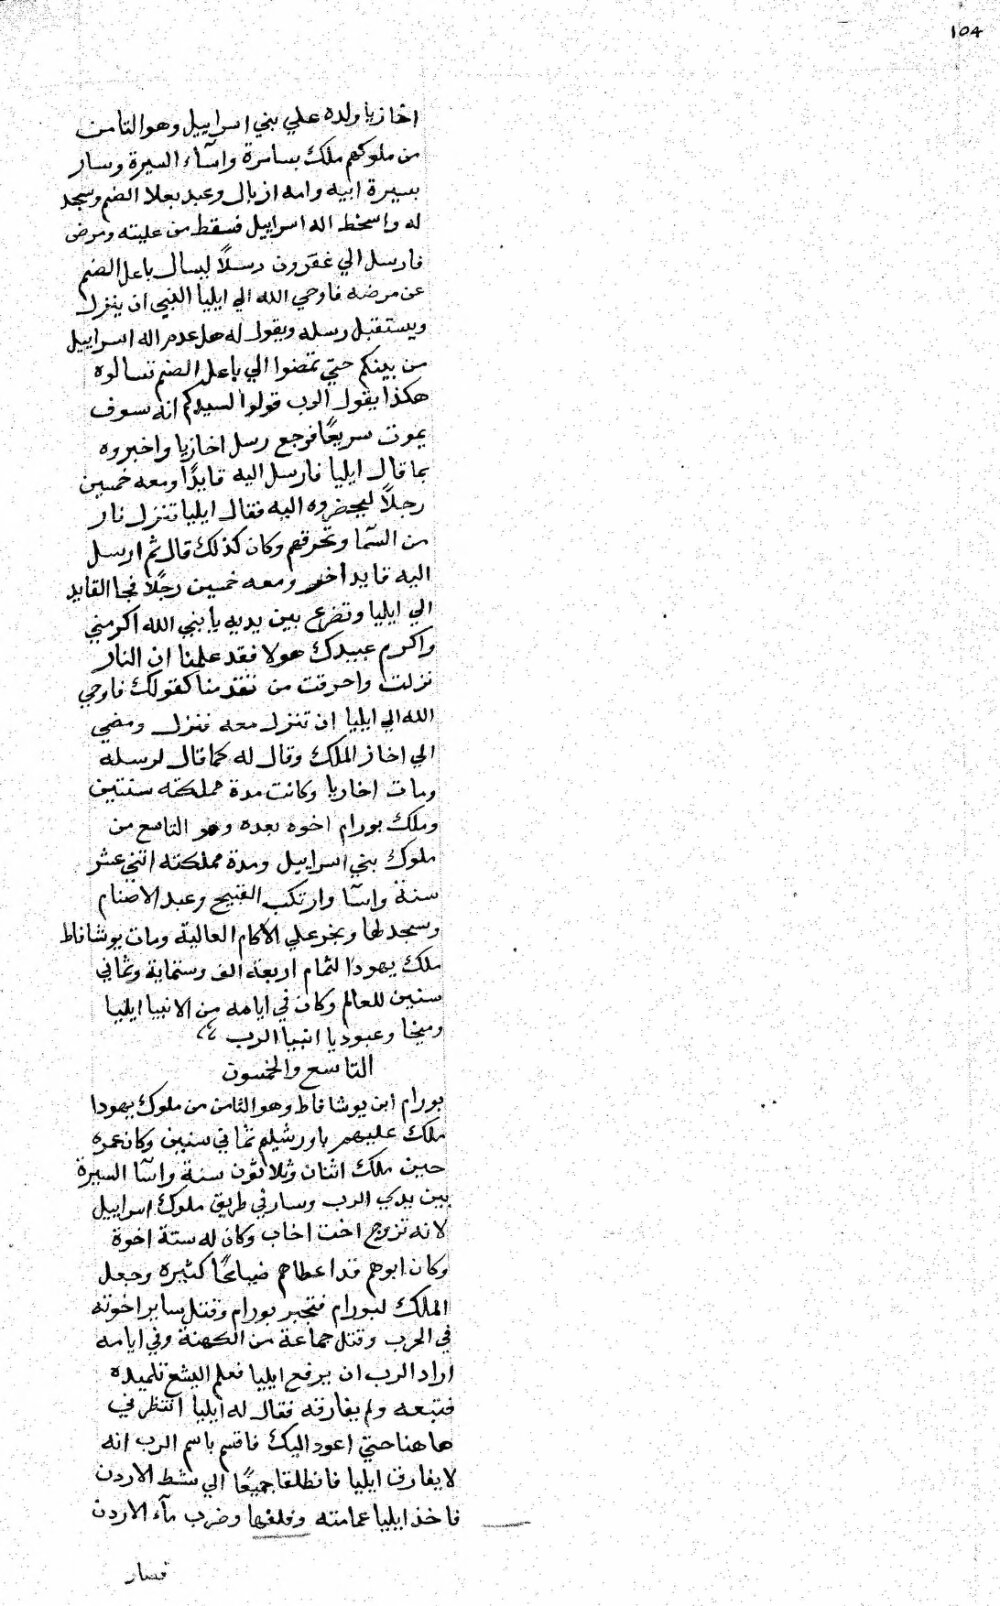 104
اخازيا ولده علي بني اسراييل وهو الثامن
من ملوكهم ملك بسامرة واسآء السيرة وسار
بسيرة ابيه وامه ازبال وعبد بعلا الصنم وسجد
له واسخط اله اسراييل فسقط من عليته ومرض
فارسل الي عقرون رسلاً ليسال باعل الصنم
عن مرضه فاوحي الله الي ايليا النبي ان ينزل
ويستقبل رسله ويقول له هل عدم اله اسراييل
من بينكم حتي تمضوا الي باعل الصنم تسالوه
هكذا يقول الرب قولوا لسيدكم انه سوف
يموت سريعًا فرجع رسل اخازيا واخبروه
بما قال ايليا فارسل اليه قايدًا ومعه خمسين
رجلاً ليحضروه اليه فقال ايليا تنزل نار
من السما وتحرقهم وكان كذلك قال ثم ارسل
اليه قايد اخر ومعه خمسين رجلاً فجا القايد
الي ايليا وتضرع بين يديه يا بني الله اكرمني
واكرم عبيدك هولا فقد علمنا ان النار
نزلت واحرقت من تقدمنا كقولك فاوحي
الله الي ايليا ان تنزل معه فنزل ومضي
الي اخاز الملك وقال له كما قال لرسله
ومات اخازيا وكانت مدة مملكته سنتين
وملك يورام اخوه بعده وهو التاسع من
ملوك بني اسراييل ومدة مملكته اثني عشر
سنة واسآ وارتكب القبيح وعبد الاصنام
وسجد لها وبخر علي الاكام العالية ومات يوشافاط
ملك يهودا لتمام اربعة الف وستماية وثماني
سنين للعالم وكان في ايامه من الانبيا ايليا
وميخا وعبوديا انبيا الرب
التاسع والخمسون
يورام ابن يوشافاط وهو الثامن من ملوك يهودا
ملك عليهم باورشليم ثماني سنين وكان عمره
حين ملك اثنان وثلاثون سنة واسآ السيرة
بين يدي الرب وسار في طريق ملوك اسراييل
لانه تزوج اخت اخاب وكان له ستة اخوة
وكان ابوهم قد اعطاهم ضياعًا كثيره وجعل
الملك ليورام فتجبر يورام وقتل ساير اخوته
في الحرب وقتل جماعة من الكهنة وفي ايامه
اراد الرب ان يرفع ايليا فعلم اليشع تلميذه
فتبعه ولم يفارقه فقال له ايليا انتظرني
هاهنا حتي اعود اليك فاقسم باسم الرب انه
لا يفارق ايليا فانطلقا جميعًا الي شط الاردن
فاخذ ايليا عمامته ولفها وضرب مآء الاردن
فصار